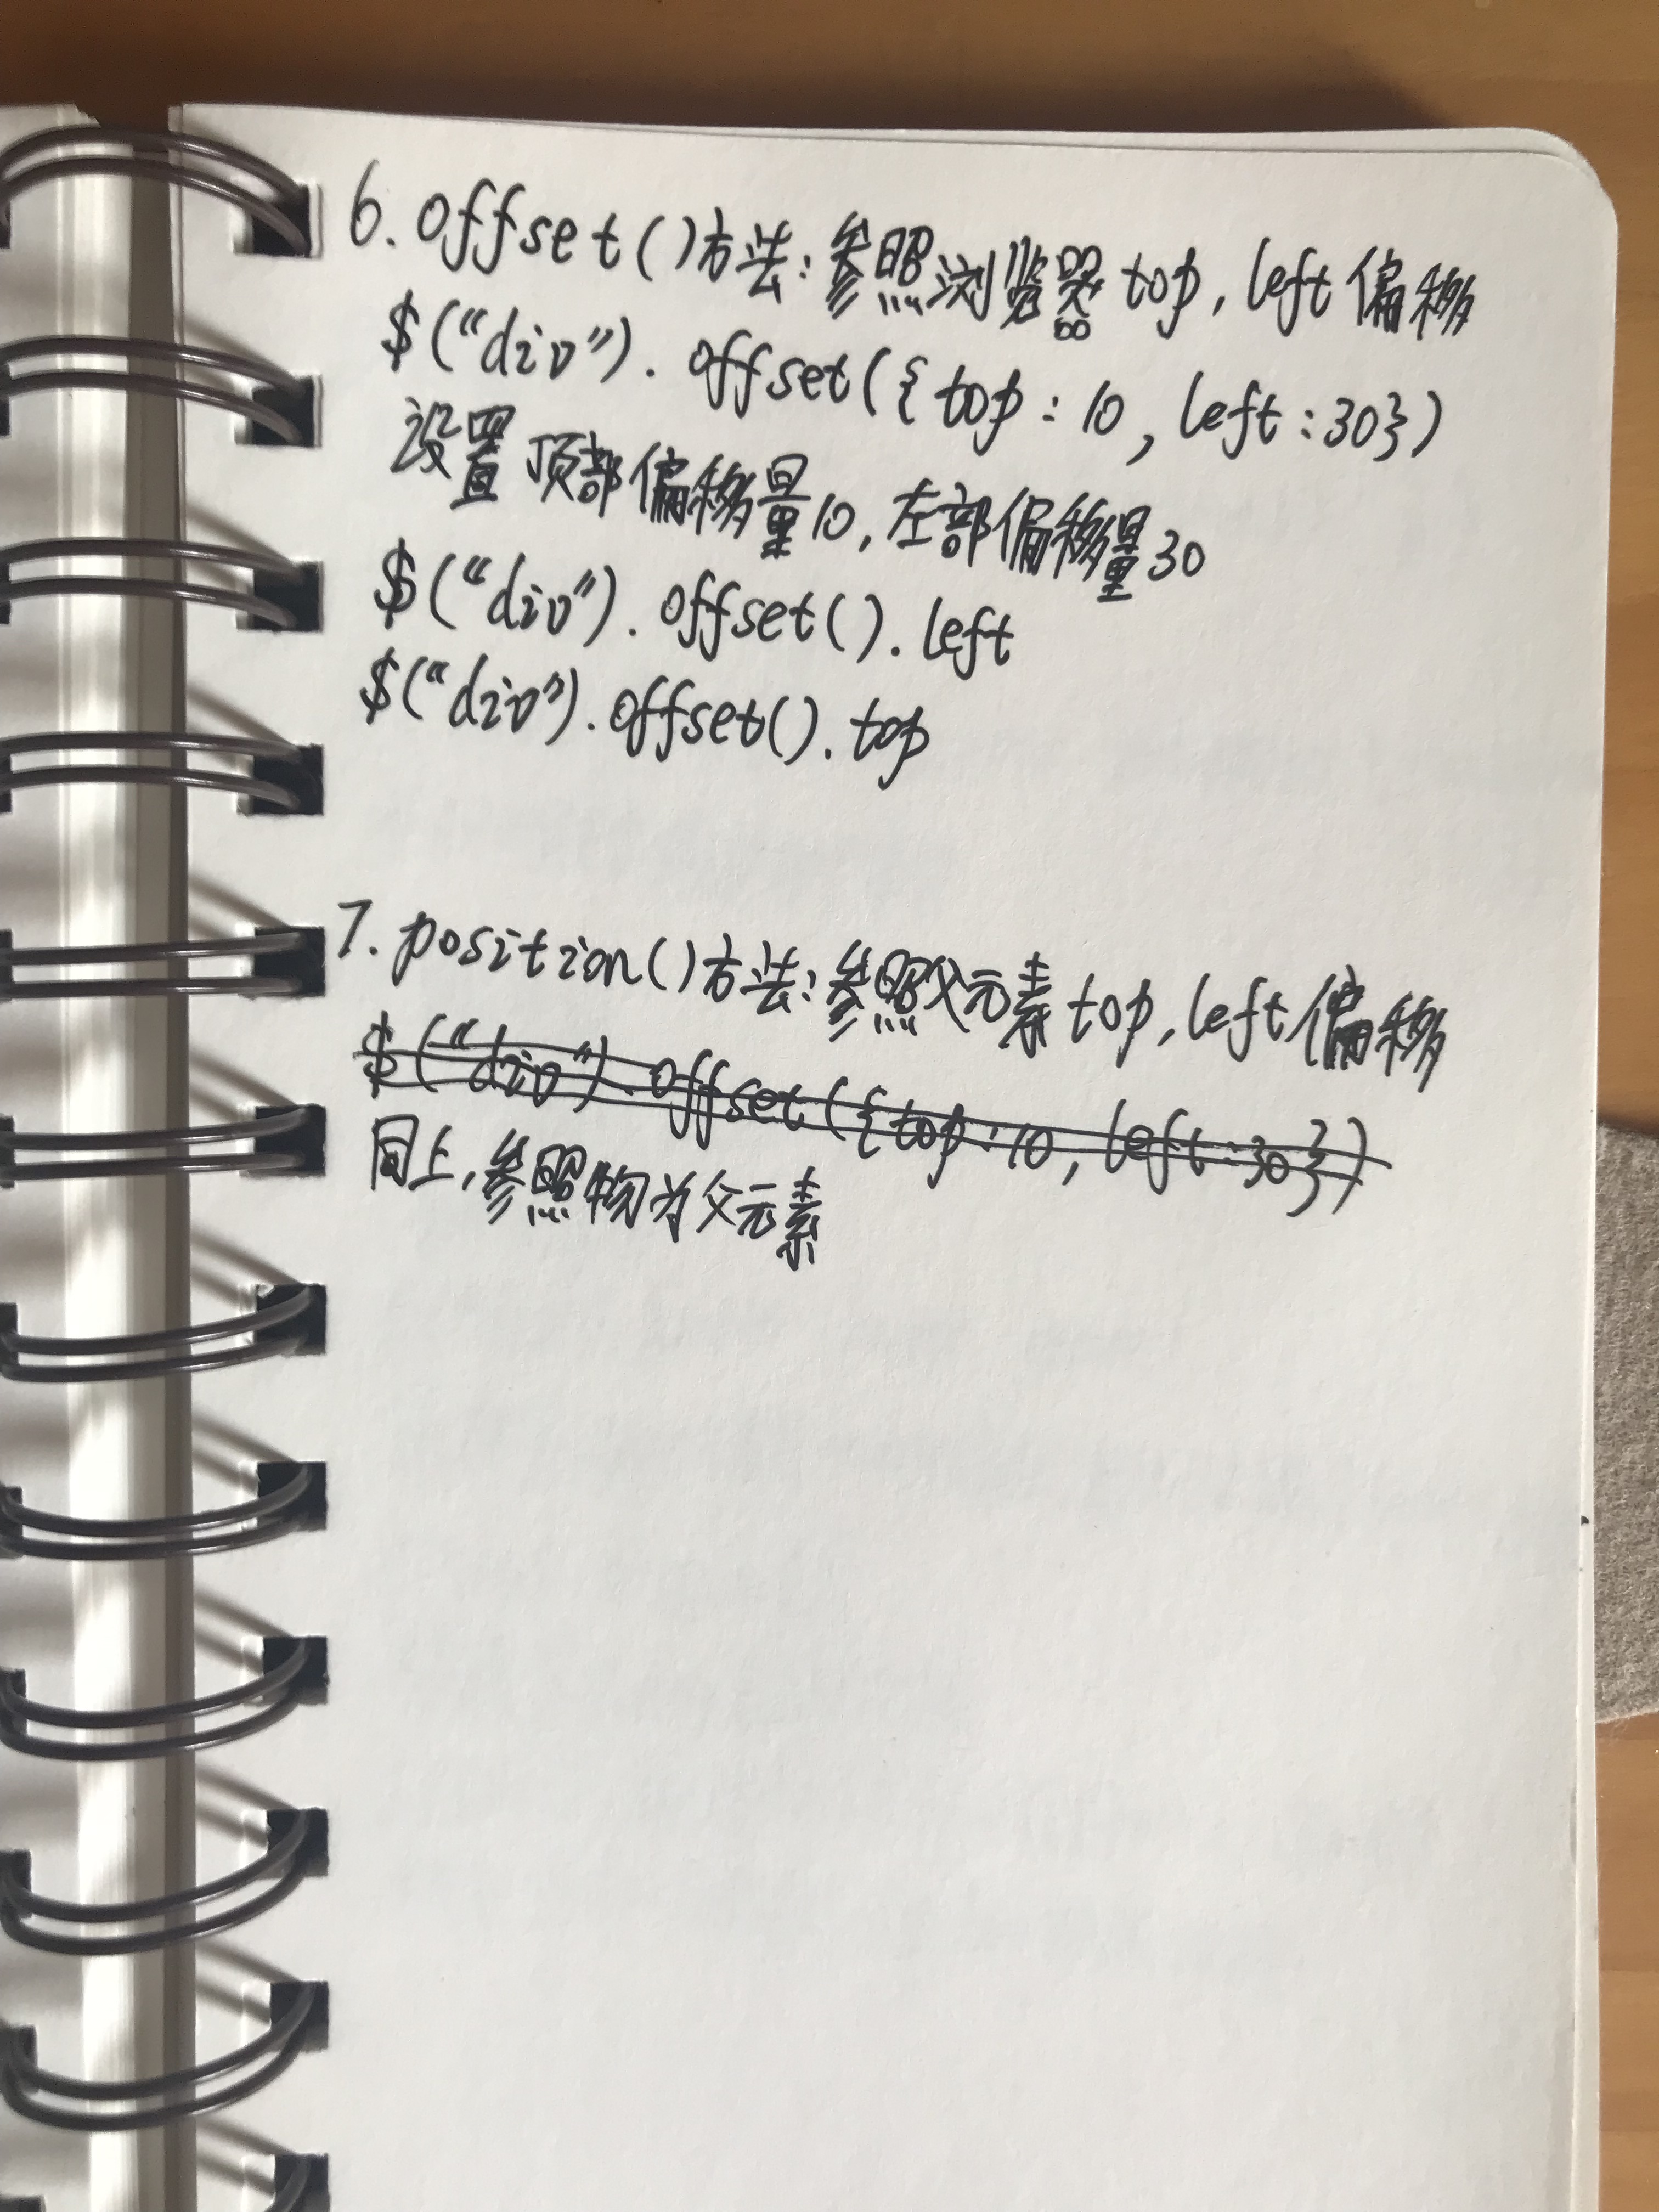 6. offset()方法:参照浏览器top,left偏移
$("div").offset({top:10,left:30})
设置顶部偏移量10,左部偏移量30
$("div").offset().left
$("div").offset().top
7. position()方法:参照父元素top,left偏移
$("div").offset({top:10,left:30})
同上,参照物为父元素